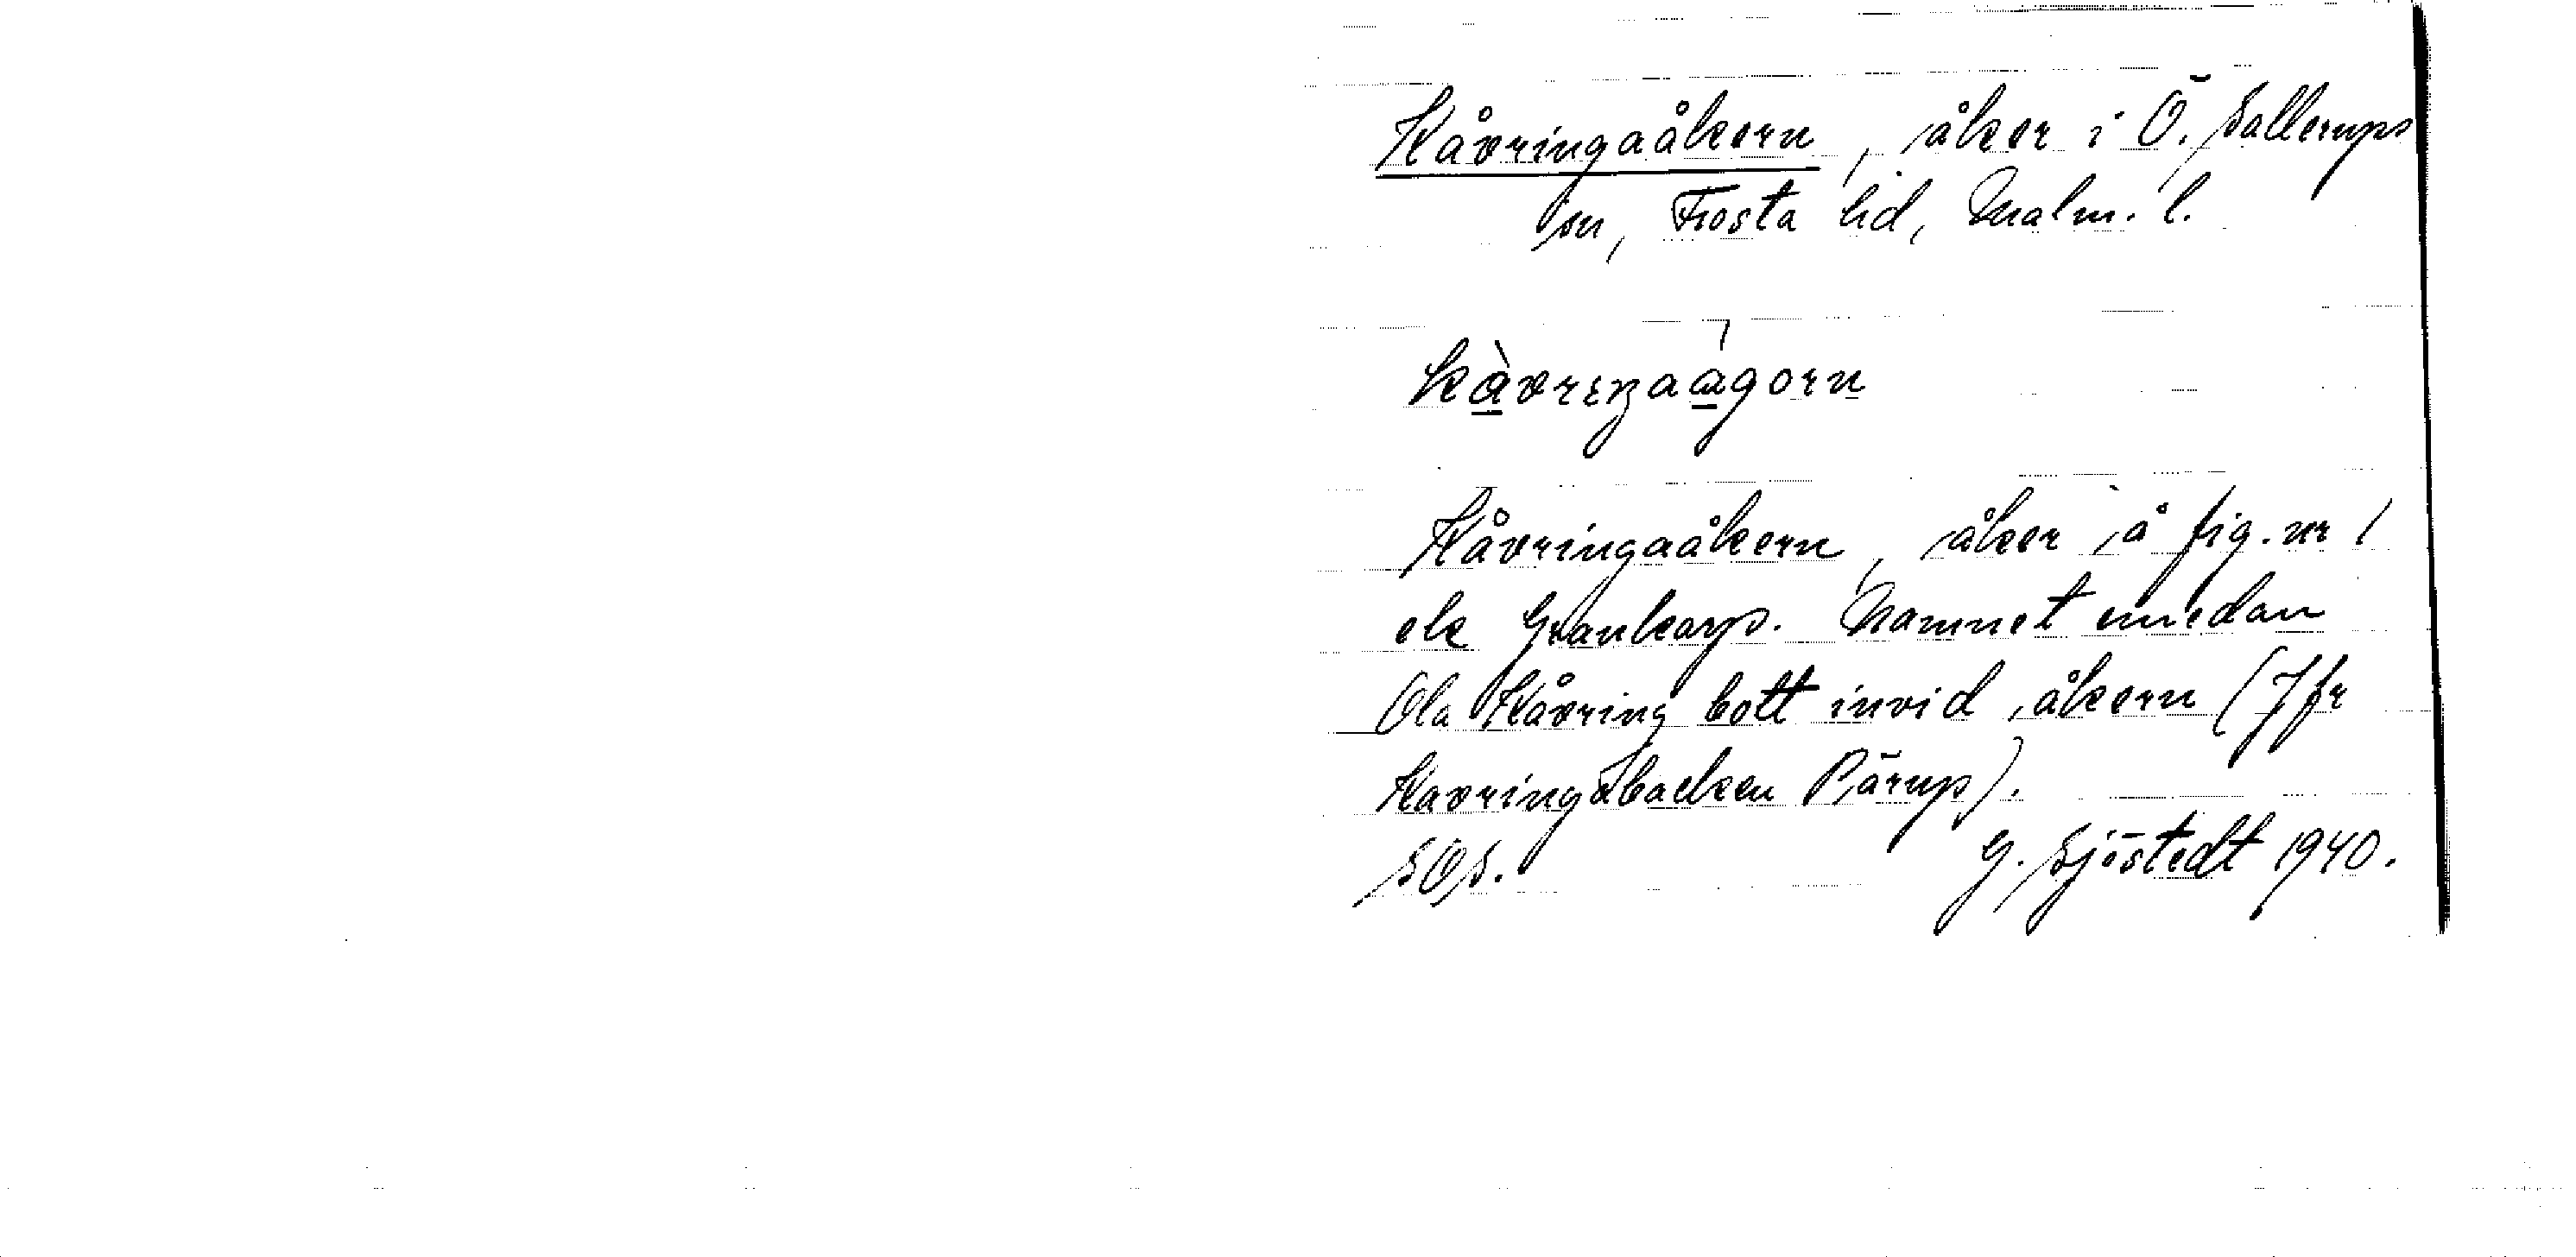 Kåvringaåkern, åker i Ö. Sallerups
sn, Frosta hd, Malm. l.
kàvrɪŋaágorn
Kåvringaåkern, åker å fig. nr 1
ek Grankarp. Namnet emedan
Ola Kåvring bott invid åkern (Jfr
Kavringabacken Pärup).
SOS. G. Sjöstedt 1940.